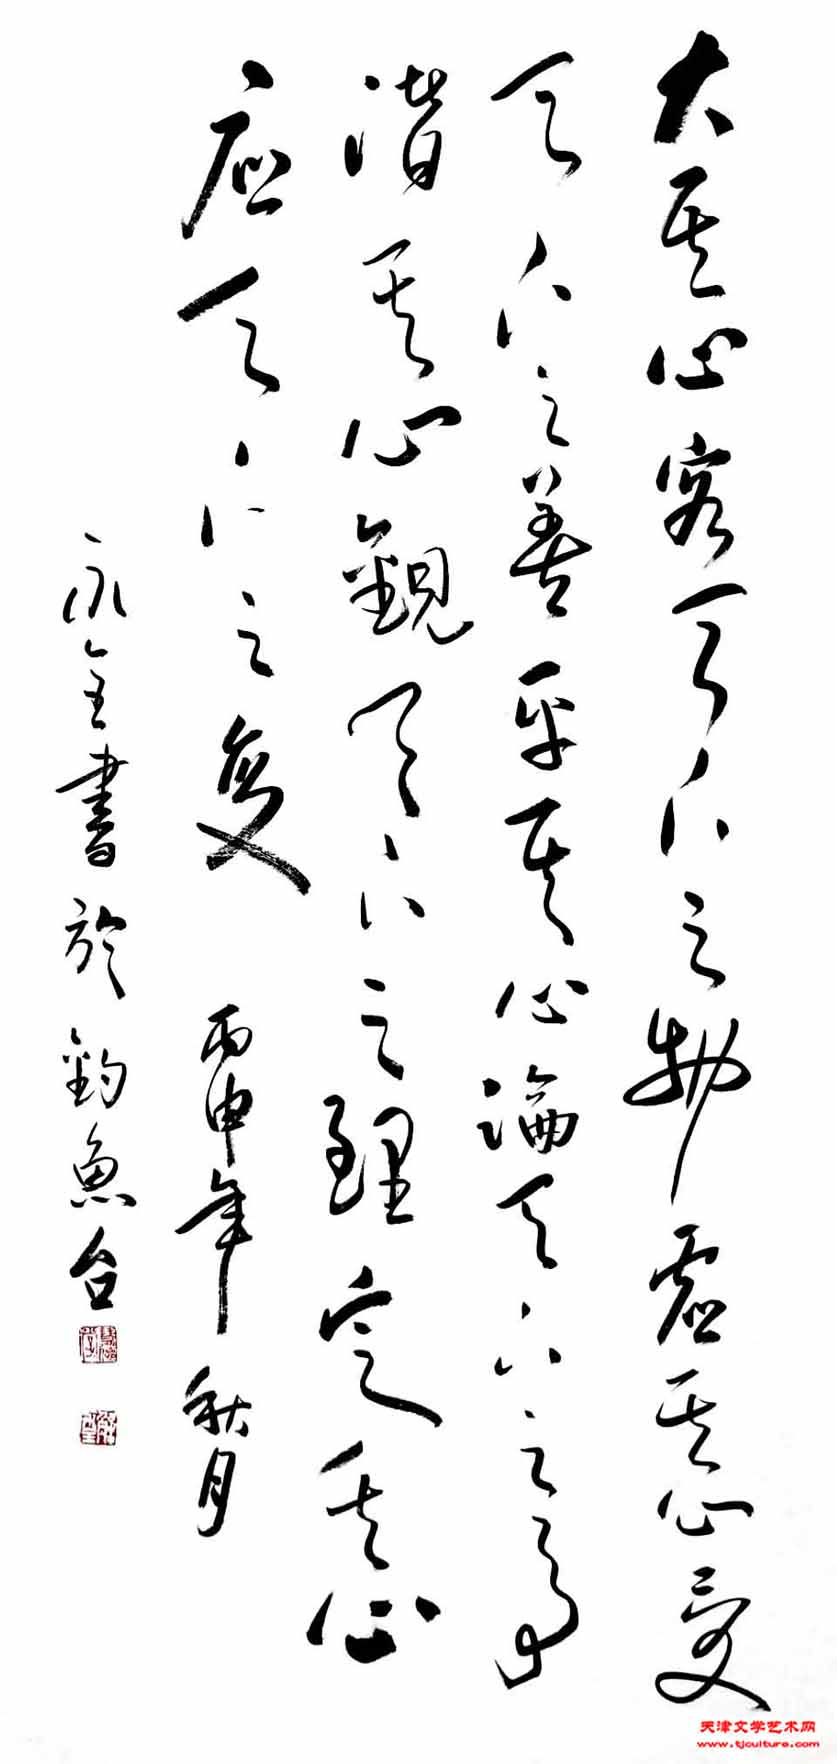 大其心容天下之物虚其心受
天下之善平其心論天下之事
潛其心觀天下之理定其心
应天下之变 丙申年秋月
永全書於釣魚台
天津文学艺术网
www.tjculture.com